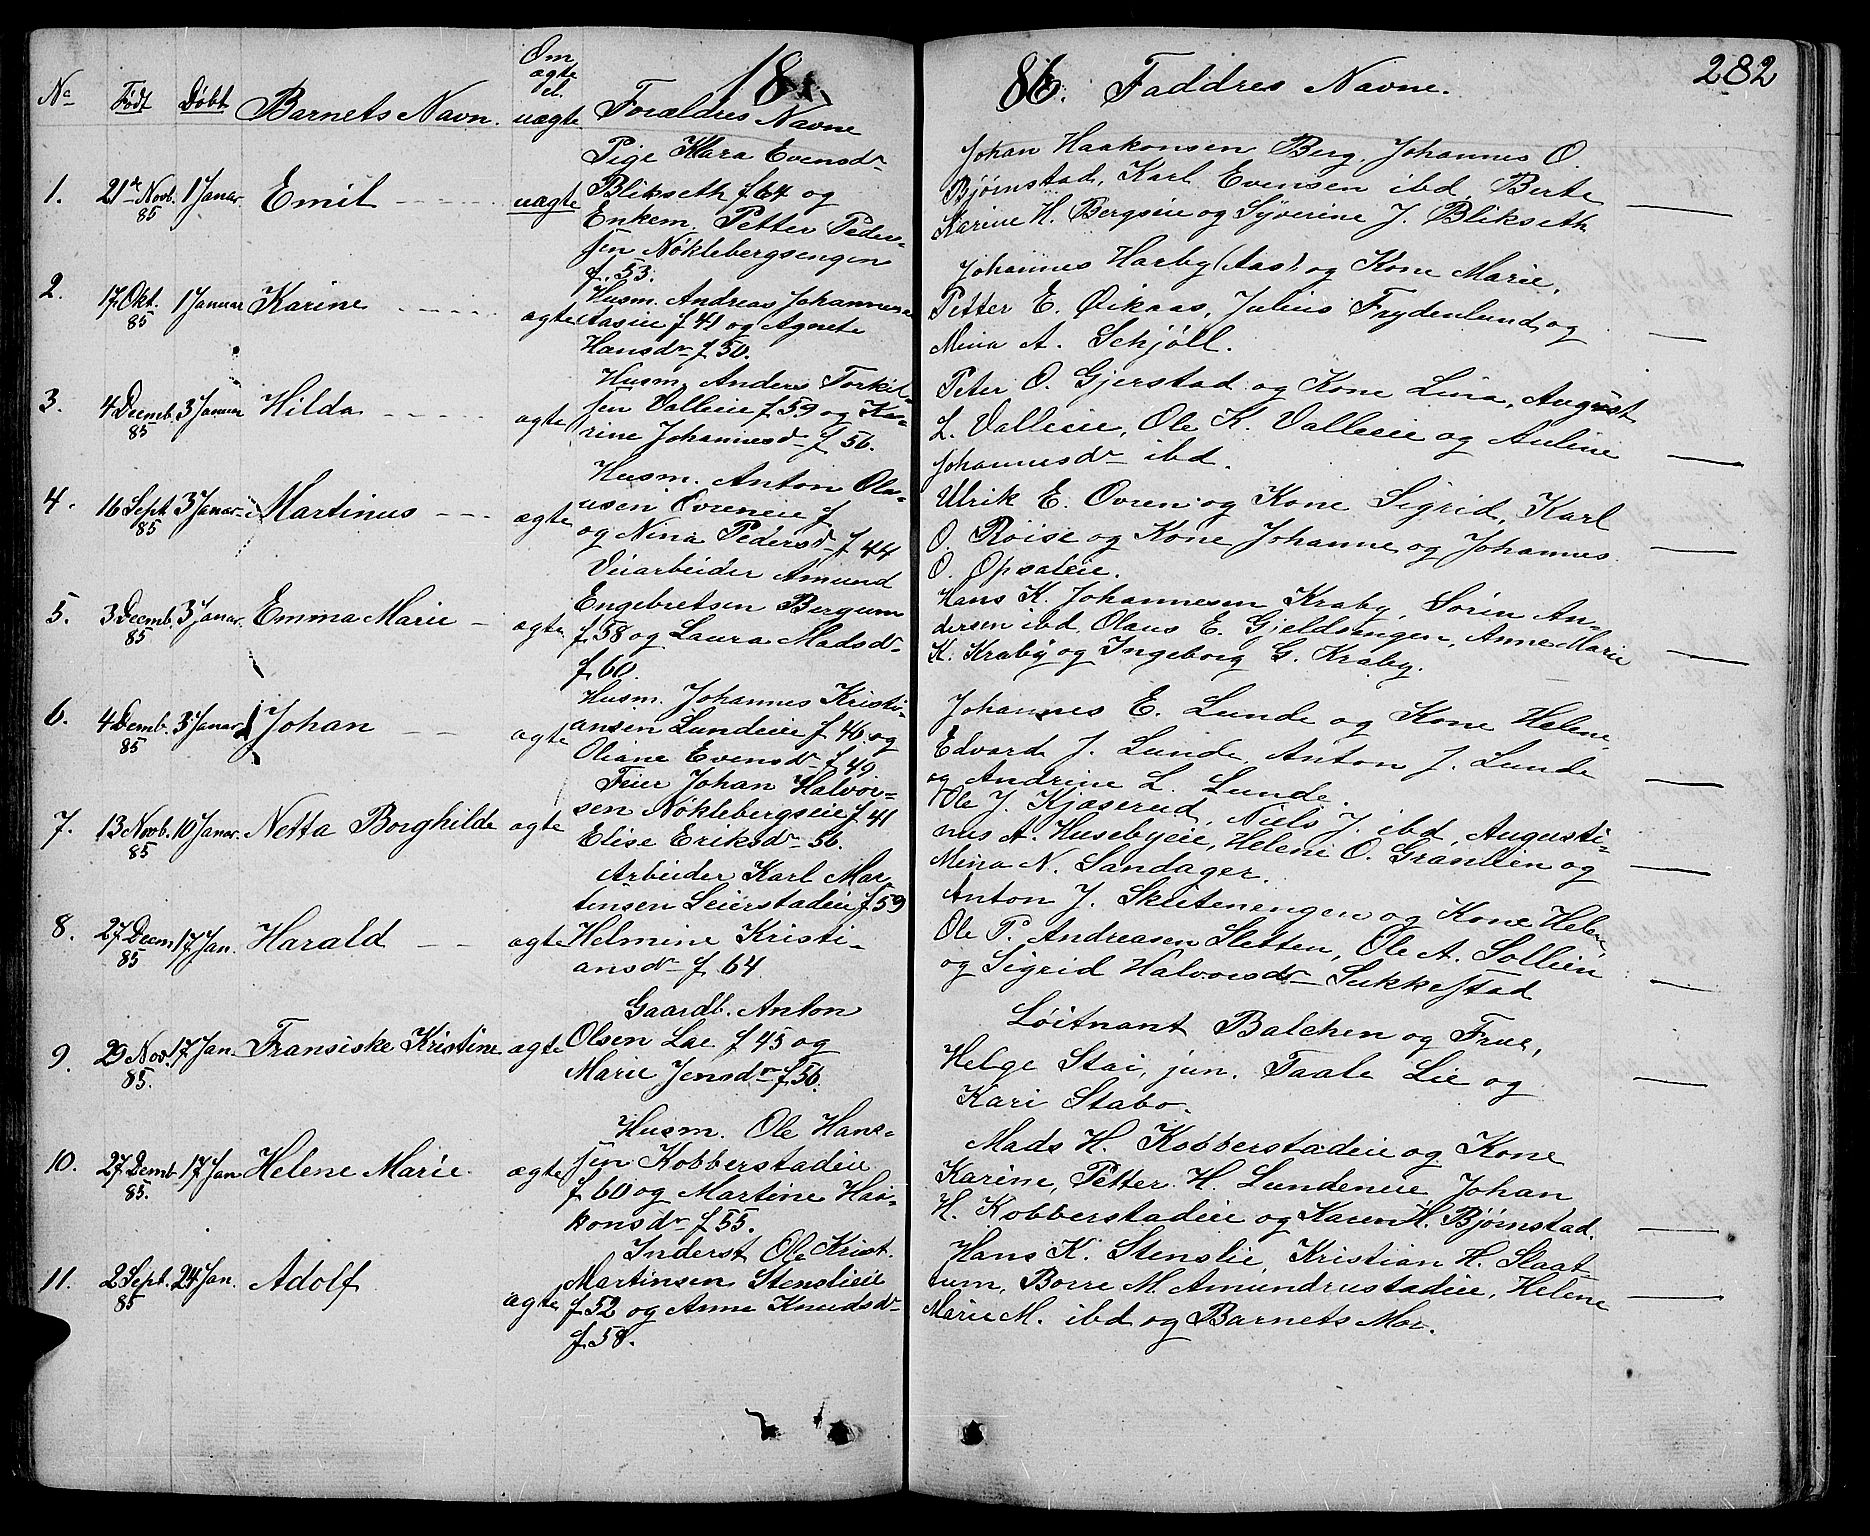 1886.
282
No Født Døbt Barnets Navn. Om ægte el. uægte Forældres Navne
Faddres Navne.
1. 21de Novb. 85 1 Januar Emil uægte
Pige Klara Evensdr
Blikseth f. 64 og
Enkem. Petter Peder-
sen Nøklebergsengen
f. 53.
Johan Haakonsen Berg, Johannes O.
Bjørnstad, Karl Evensen ibd, Berte
Karine H. Bergseie og Syverine J. Blikseth
2. 17 Okt. 85 1 Januar Karine ægte
Husm. Andreas Johannesen
f 41 og Agnete
Hansdr f 50.
Johannes Harby (Aas) og Kone Marie,
Petter E. Øikaas, Julius Frydenlund, og
Mina A. Schjöll.
3. 4 Decemb. 85 3 Januar Hilda ægte
Husm. Anders Torkil-
sen Valleeie f 59 og Ka-
rine Johannesdr f 56.
Peter O. Gjerstad og Kone Lina, August
L. Valleeie, Ole K. Valleeie og Auline
Johannesdr ibd.
4. 16 Sept 85 3 Januar Martinus ægte
Husm. Anton Ola-
usen Övreneie f
og Nina Pedersdr f 44
Ulrik E. Ovren og Kone Sigrid, Karl
O. Röise og Kone Johanne og Johannes
O. Opsaleie.
5. 3 Decemb. 85 3 Januar. Emma Marie ægte
Veiarbeider Amund
Engebretsen Bergum
f. 58 og Laura Madsdr
f 60.
Hans K. Johannesen Kraby, Sörin An-
dersen ibd, Olaus E. Gjeldsengen, Anne Marie
K. Kraby og Ingeborg G. Kraby.
6. 4 Decemb. 85 3 Januar Johan ægte
Husm. Johannes Kristi-
ansen Lundeeie f 46 og
Oliane Evensdr f 49
Johannes E. Lunde og Kone Helene,
Edvard J. Lunde, Anton J. Lunde
og Andrine L. Lunde.
7. 13 Novb. 85 10 Januar. Netta Borghilde ægte
Feier Johan Halvor-
sen Nøklebergseie f 41
Elise Eriksdr 56.
Ole J. Kjæserud, Niels J. ibd, Augusti-
nus A. Husebyeie, Helene O. Granlien og
Mina N. Sandager.
8. 27 Decem 85 17 Jan. Harald ægte
Arbeider Karl Mar
tinsen Seierstadeie f 59
Helmine Kristi-
ansdr f 64
Anton J. Skiitenengen og Kone Helene
Ole P. Andreasen Sletten, Ole A. Sollien
og Sigrid Halvorsdr Sukkestad
9. 29 Nov. 85. 17 Jan. Fransiske Kristine ægte
Gaardb. Anton
Olsen Lae f 45 og
Marie Jensdr f 56.
Löitnant Balchen og Frue,
Helge Stai, jun. Taale Lie og
Kari Stabo.
10. 27 Decemb. 85. 17 Jan Helene Marie ægte
Husm. Ole Hans-
sen Kobberstadeie
f 60 og Martine Haa-
konsdr f 55.
Mads H. Kobberstadeie og Kone
Karine, Petter H. Lundeneie, Johan
H. Kobberstadeie og Karen H. Bjørnstad.
11. 2 Sept. 85 24 Jan. Adolf ægte
Inderst Ole Krist.
Martinsen Stenslieie
f 52 og Anne Knudsdr
f 58.
Hans K. Stenslie, Kristian H. Slaat-
tum, Borre M. Amundrustadeie, Helene
Marie M. ibd og Barnets Mor.